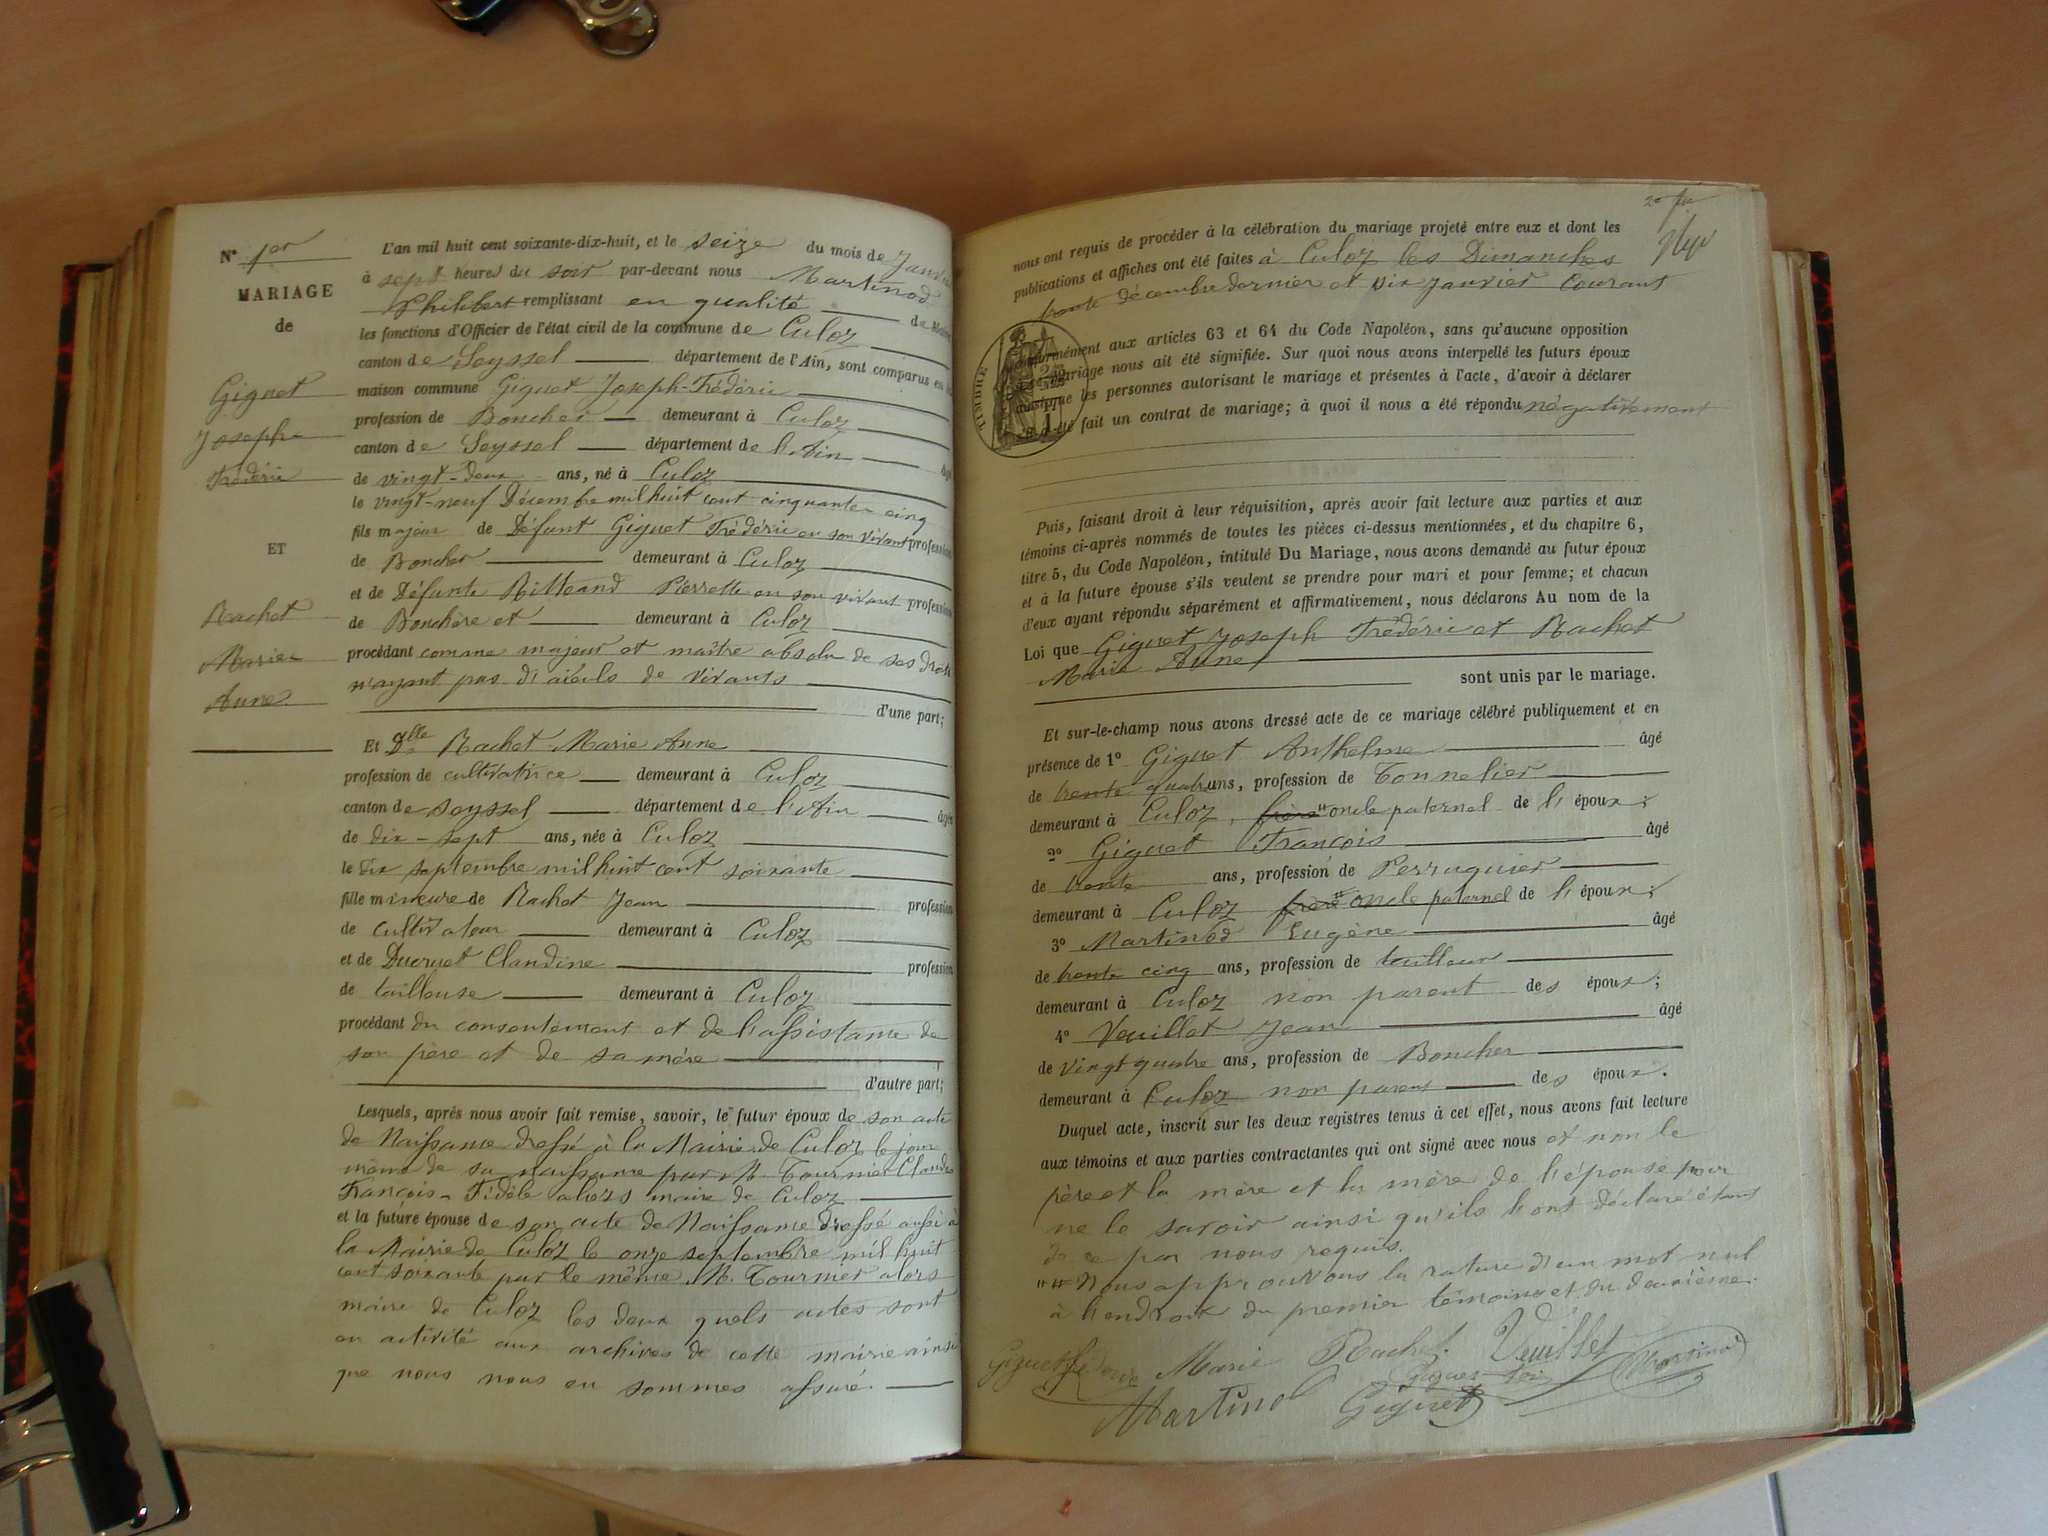 N° 1er
MARIAGE
de
Giguet
Joseph
Frédéric
ET
Rachet
Marie
Anne
L'an mil huit cent soixante-dix-huit, et le seize du mois de Janvier
à sept heures du soir par-devant nous Martinod
Philibert remplissant en qualité de Maire
les fonctions d'Officier de l'état civil de la commune de Culoz
canton de Seyssel département de l'Ain, sont comparus en la
maison commune Giguet Joseph-Frédéric
profession de Boucher demeurant à Culoz
canton de Seyssel département de l'Ain âgé
de vingt-deux ans, né à Culoz
le vingt-neuf Décembre mil huit cent cinquante-cinq
fils majeur de Défunt Giguet Frédéric en son vivant profession
de Boucher demeurant à Culoz
et de Défunte Pierrette en son vivant profession
de Bouchère et demeurant à Culoz
procédant comme majeur et maître absolu de ses droits
n'ayant pas d'aïeuls de vivants
d'une part;
Et Dlle Rachet Marie Anne
profession de cultivatrice demeurant à Culoz
canton de Seyssel département de l'Ain âgée
de dix-sept ans, née à Culoz
le dix septembre mil huit cent soixante
fille mineure de Rachet Jean profession
de cultivateur demeurant à Culoz
et de Ducruet Claudine profession
de tailleuse demeurant à Culoz
procédant du consentement et de l'assistance de
son père et de sa mère
d'autre part;
Lesquels, après nous avoir fait remise, savoir, le futur époux de son acte
de Naissance dressé à la Mairie de Culoz le jour
même de sa naissance par M. Tournier Claude
François-Fidèle alors maire de Culoz
et la future épouse de son acte de Naissance dressé aussi à
la Mairie de Culoz le onze septembre mil huit
cent soixante par le même M. Tournier alors
maire de Culoz les deux quels actes sont
en activité aux archives de cette mairie ainsi
que nous nous en sommes assuré.
nous ont requis de procéder à la célébration du mariage projeté entre eux et dont les
publications et affiches ont été faites à Culoz les Dimanches
trente décembre dernier et dix janvier courant
conformément aux articles 63 et 64 du Code Napoléon, sans qu'aucune opposition
mariage nous ait été signifiée. Sur quoi nous avons interpellé les futurs époux
ainsi que les personnes autorisant le mariage et présentes à l'acte, d'avoir à déclarer
été fait un contrat de mariage; à quoi il nous a été répondu négativement
TIMBRE
Puis, faisant droit à leur réquisition, après avoir fait lecture aux parties et aux
témoins ci-après nommés de toutes les pièces ci-dessus mentionnées, et du chapitre 6,
titre 5, du Code Napoléon, intitulé Du Mariage, nous avons demandé au futur époux
et à la future épouse s'ils veulent se prendre pour mari et pour femme; et chacun
d'eux ayant répondu séparément et affirmativement, nous déclarons Au nom de la
Loi que Giguet Joseph Frédéric et Rachet
Marie Anne
sont unis par le mariage.
Et sur-le-champ nous avons dressé acte de ce mariage célébré publiquement et en
présence de 1° Giguet Anthelme âgé
de trente quatre ans, profession de Tonnelier
demeurant à Culoz, frère " oncle paternel de l'époux;
2° Giguet François âgé
de trente ans, profession de Perruquier
demeurant à Culoz frère " oncle paternel de l'époux;
3° Martinod Eugène âgé
de trente cinq ans, profession de tailleur
demeurant à Culoz non parent des époux;
4° Veuillet Jean âgé
de vingt quatre ans, profession de Boucher
demeurant à Culoz non parent des époux.
Duquel acte, inscrit sur les deux registres tenus à cet effet, nous avons fait lecture
aux témoins et aux parties contractantes qui ont signé avec nous et non le
père et la mère et la mère de l'épouse pour
ne le savoir ainsi qu'ils l'ont déclaré étant
de ce par nous requis.
"" Nous approuvons la rature d'un mot nul
à l'endroit du premier témoins et du deuxième.
Giguet Marie Rachet. Veuillet Martinod
Martinod Giguet